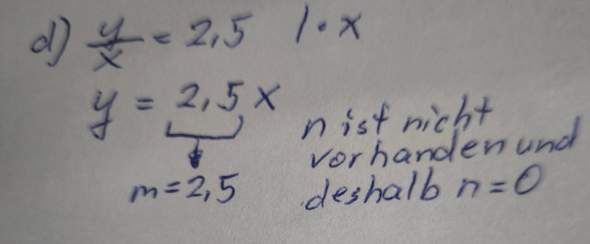 d) y/x = 2,5 | · x
y = 2,5 x
n ist nicht
vorhanden und
m = 2,5
deshalb n = 0